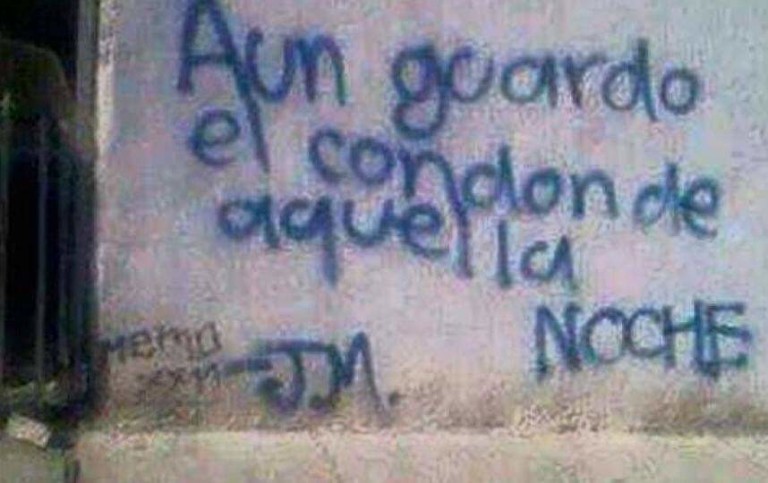 Aun guardo
el condon de
aquella
NOCHE
memo
J.M.